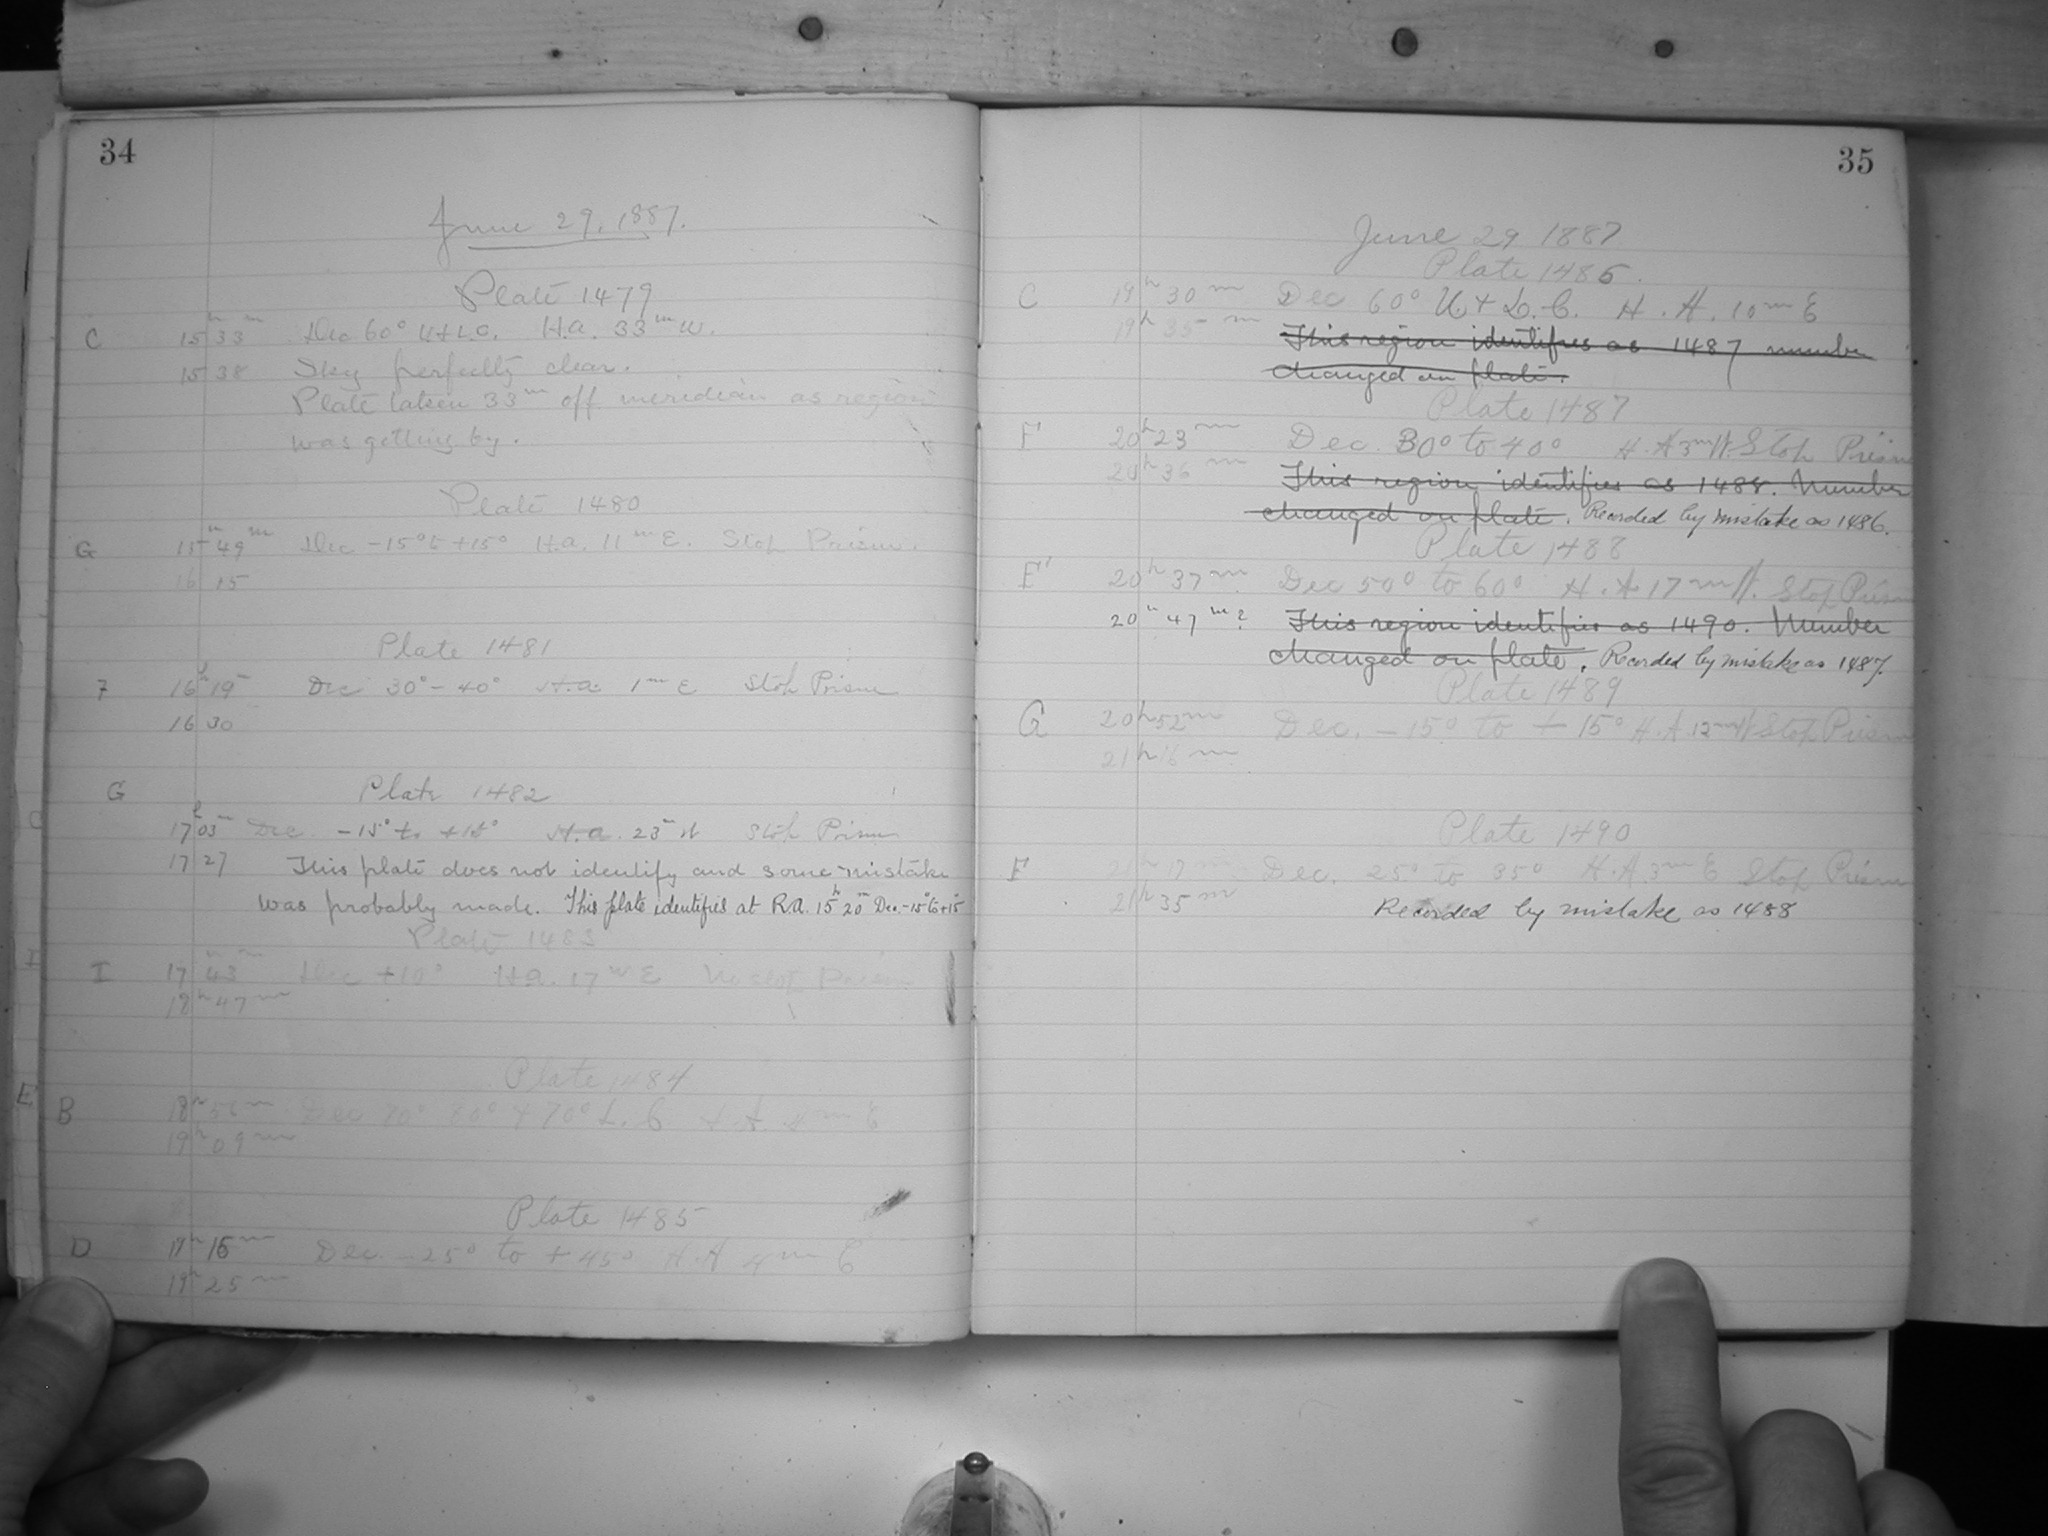 34
June 29, 1887.
Plate 1479
C 15h 33m Dec 60° U+L.C. H.a. 33m W.
15 38 Sky perfectly clear.
Plate taken 33m off meridian as region
was getting by.
Plate 1480
G 15h 49m Dec -15° to +15° H.a. 11m E. Stop Prism.
16 15
Plate 1481
F 16h 19 Dec 30° - 40° H.a. 1m E Stop Prism
16 30
G Plate 1482
17h 03m Dec -15° to +15° H.a. 23m W Stop Prism
17 27 This plate does not identify and some mistake
was probably made. This plate identifies at R.a. 15h 20m Dec. -15° to +15°
Plate 1483
I 17h 43m Dec +10° H.a. 17m E No stop Prism
18h 47m
Plate 1484
B 18h 56m Dec 70° 80° + 70° L.C H.A. 8m E
19h 09m
Plate 1485
D 19h 16m Dec. -25° to +45° H.A 9m E
19h 25m
35
June 29 1887
Plate 1486.
C 19h 30m Dec 60° U+L.C. H.A. 10m E
19h 35m This region identifies as 1487 number
changed on plate.
Plate 1487
F 20h 23m Dec. 30° to 40° H.A 3m W. Stop Prism
20h 36m This region identifies as 1488. Number
changed on plate. Recorded by mistake as 1486.
Plate 1488
E 20h 37m Dec 50° to 60° H.A 17m W. Stop Prism
20h 47m? This region identifies as 1490. Number
changed on plate. Recorded by mistake as 1487.
Plate 1489
G 20h 52m Dec. -15° to +15° H.A 12m W Stop Prism
21h 16m
Plate 1490
F 21h 17m Dec. 25° to 35° H.A. 3m E Stop Prism
21h 35m Recorded by mistake as 1488